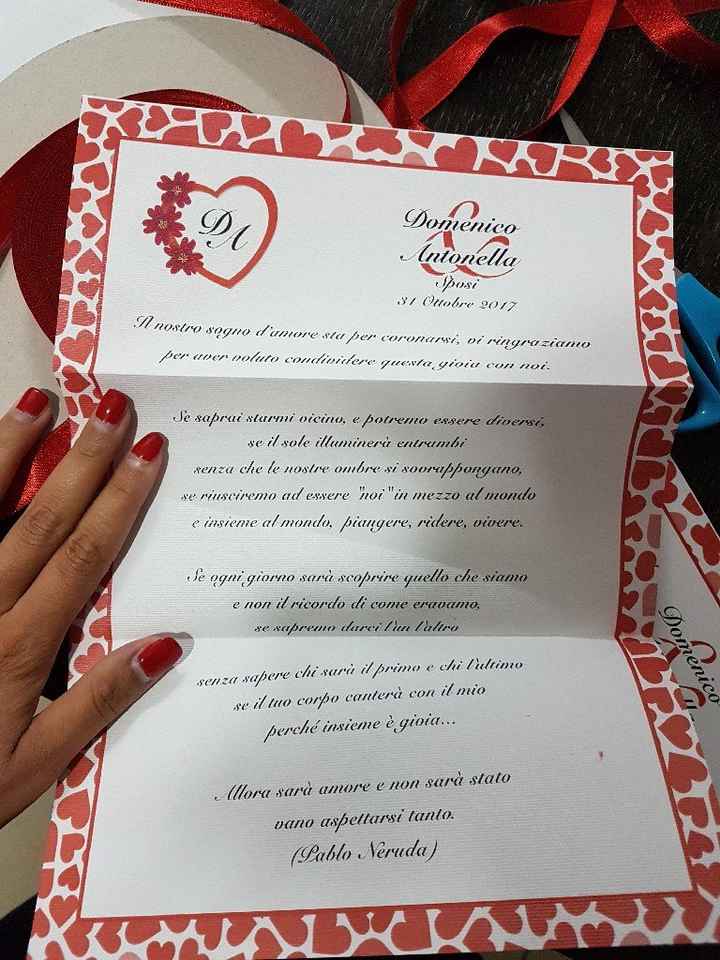 DA
Domenico
&
Antonella
Sposi
31 Ottobre 2017
Il nostro sogno d'amore sta per coronarsi, vi ringraziamo
per aver voluto condividere questa gioia con noi.
Se saprai starmi vicino, e potremo essere diversi,
se il sole illuminerà entrambi
senza che le nostre ombre si sovrappongano,
se riusciremo ad essere "noi" in mezzo al mondo
e insieme al mondo, piangere, ridere, vivere.
Se ogni giorno sarà scoprire quello che siamo
e non il ricordo di come eravamo,
se sapremo darci l'un l'altro
senza sapere chi sarà il primo e chi l'ultimo
se il tuo corpo canterà con il mio
perché insieme è gioia...
Allora sarà amore e non sarà stato
vano aspettarsi tanto.
(Pablo Neruda)
Domenico
&